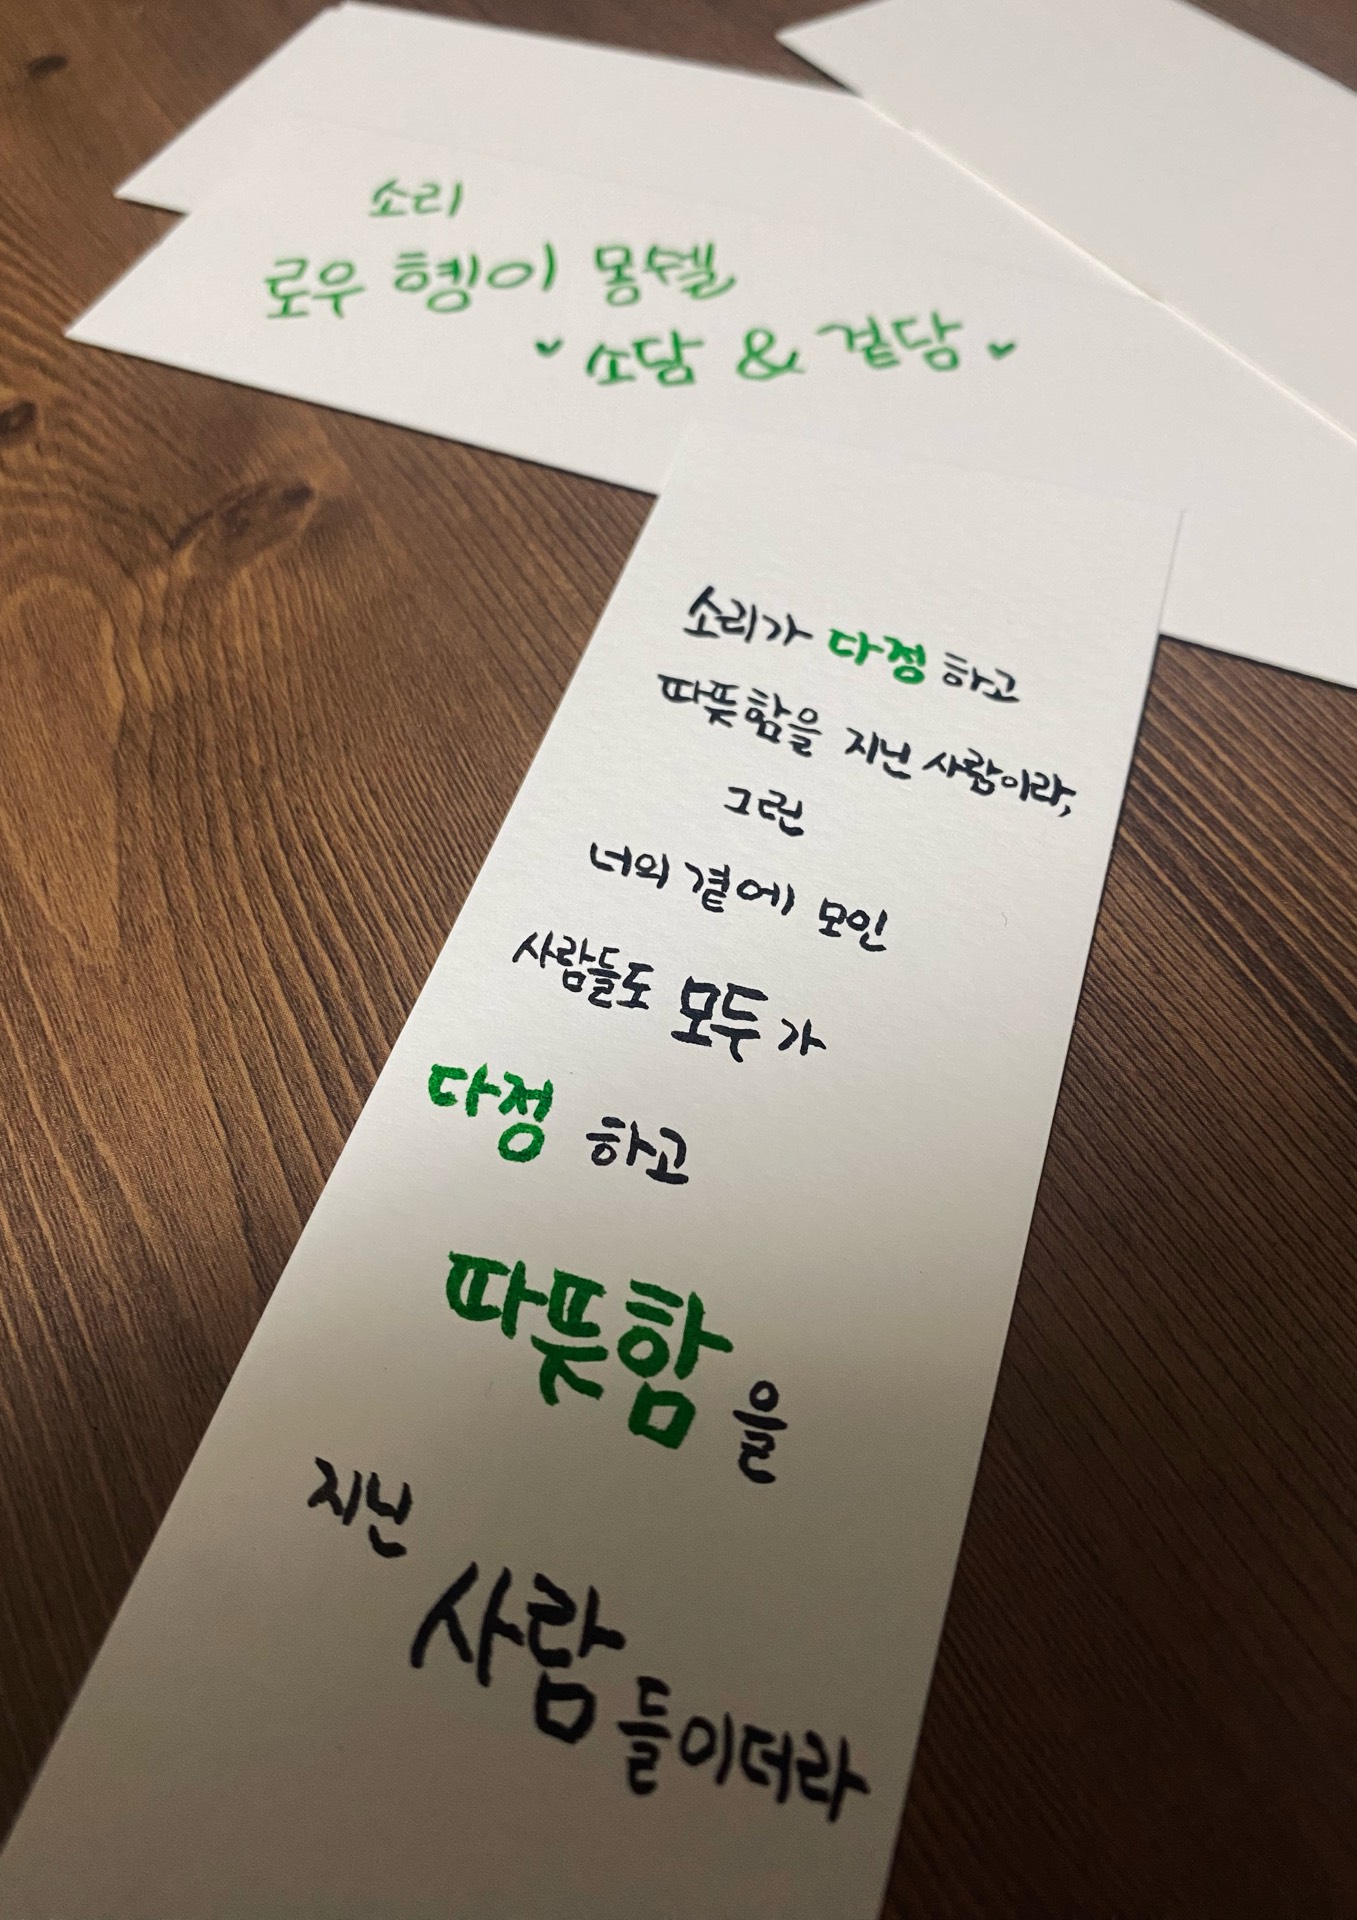 소리
로우 헹이 몽쉘
소담 & 겉담
소리가 다정하고
따뜻함을 지닌 사람이라,
그런
너의 곁에 모인
사람들도 모두가
다정 하고
따뜻함을
지닌
사람들이더라